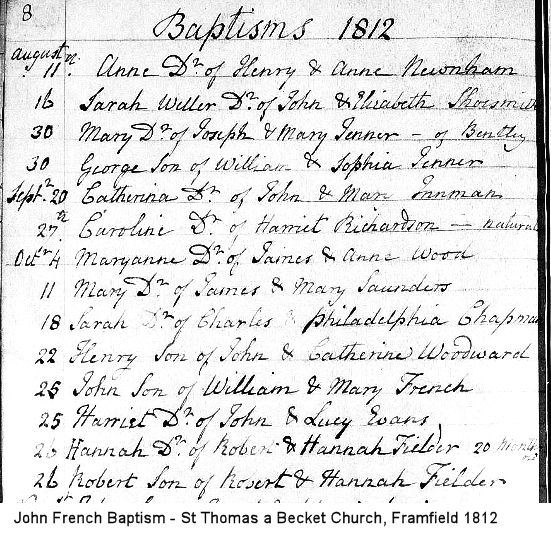 8
Baptisms 1812
August 11th. Anne Dr. of Henry & Anne Newnham
16 Sarah Weller Dr. of John & Elizabeth Shoesmith
30 Mary Dr. of Joseph & Mary Jenner - of Bentley
30 George Son of William & Sophia Jenner
Septr. 20 Catherina Dr. of John & Mary Innman
27th Caroline Dr. of Harriet Richardson - natural
Octr. 4 Maryanne Dr. of James & Anne Wood
11 Mary Dr. of James & Mary Saunders
18 Sarah Dr. of Charles & Philadelphia Chapman
22 Henry Son of John & Catherine Woodward
25 John Son of William & Mary French
25 Harriet Dr. of John & Lucy Evans
26 Hannah Dr. of Robert & Hannah Fielder 20 months
26 Robert Son of Robert & Hannah Fielder
John French Baptism - St Thomas a Becket Church, Framfield 1812